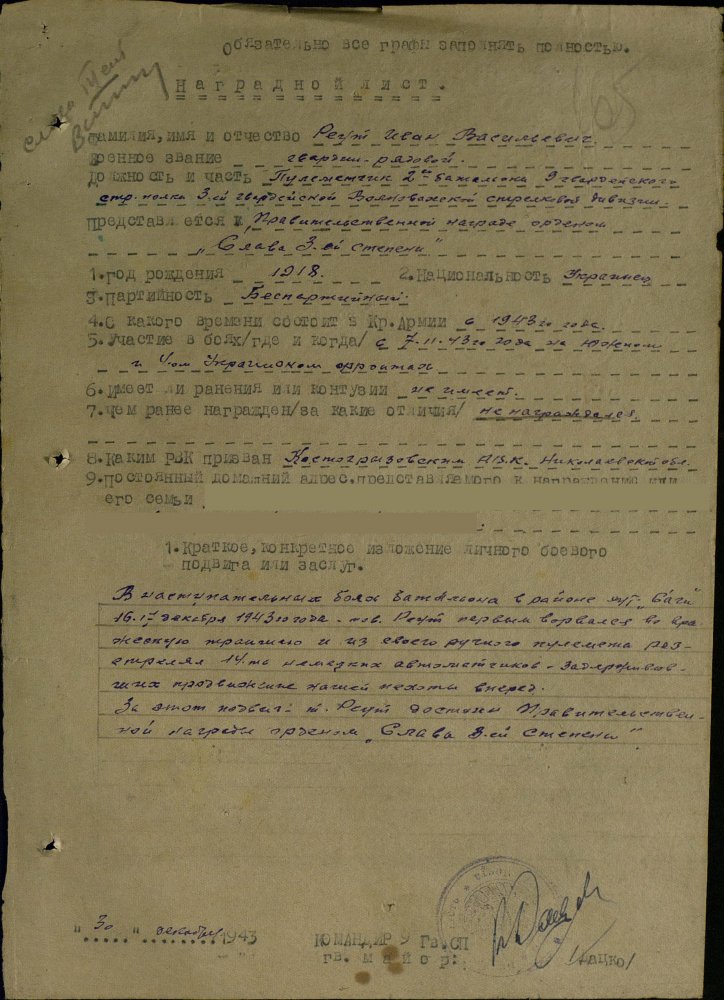 Обязательно все графы заполнять полностью.
слава III ст
Наградной лист.
Фамилия, имя и отчество Реут Иван Васильевич.
Военное звание гвардии-рядовой.
Должность и часть Пулеметчик 2го батальона 9 гвардейского
стр. полка 3-ей гвардейской Волновахской стрелковой дивизии.
Представляется к Правительственной награде орденом
„Слава 3-ей степени"
1. год рождения 1918. 2. Национальность Украинец
3. Партийность Беспартийный.
4. С какого времени состоит в Кр. Армии с 1943го года.
5. Участие в боях/где и когда/ с 7.11.43го года на Южном
и 4-ом Украинском фронтах
6. имеет ли ранения или контузии не имеет.
7. чем ранее награжден/за какие отличия/ не награждался
8. Каким РВК призван Костогрызовским Р.В.К. Николаевской обл.
9. Постоянный домашний адрес, представляемого к награждению или
его семьи
1. Краткое, конкретное изложение личного боевого
подвига или заслуг.
В наступательных боях батальона в районе
16.17 декабря 1943го года тов. Реут первым ворвался во вра-
жескую траншею и из своего ручного пулемета рас-
стрелял 14-ть немецких автоматчиков - задерживав-
ших продвижение нашей пехоты вперед.
За этот подвиг т. Реут достоин Правительствен-
ной награды орденом „Слава 3-ей Степени"
"30" декабря 1943
КОМАНДИР 9 Гв.СП
гв. майор: /Дацко/